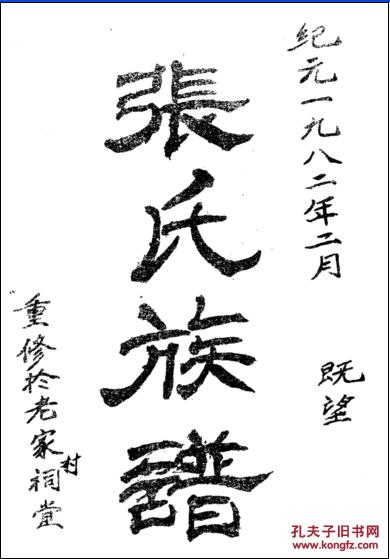 纪元一九八二年二月 既望
張氏族譜
重修於老家村祠堂
孔夫子旧书网
www.kongfz.com